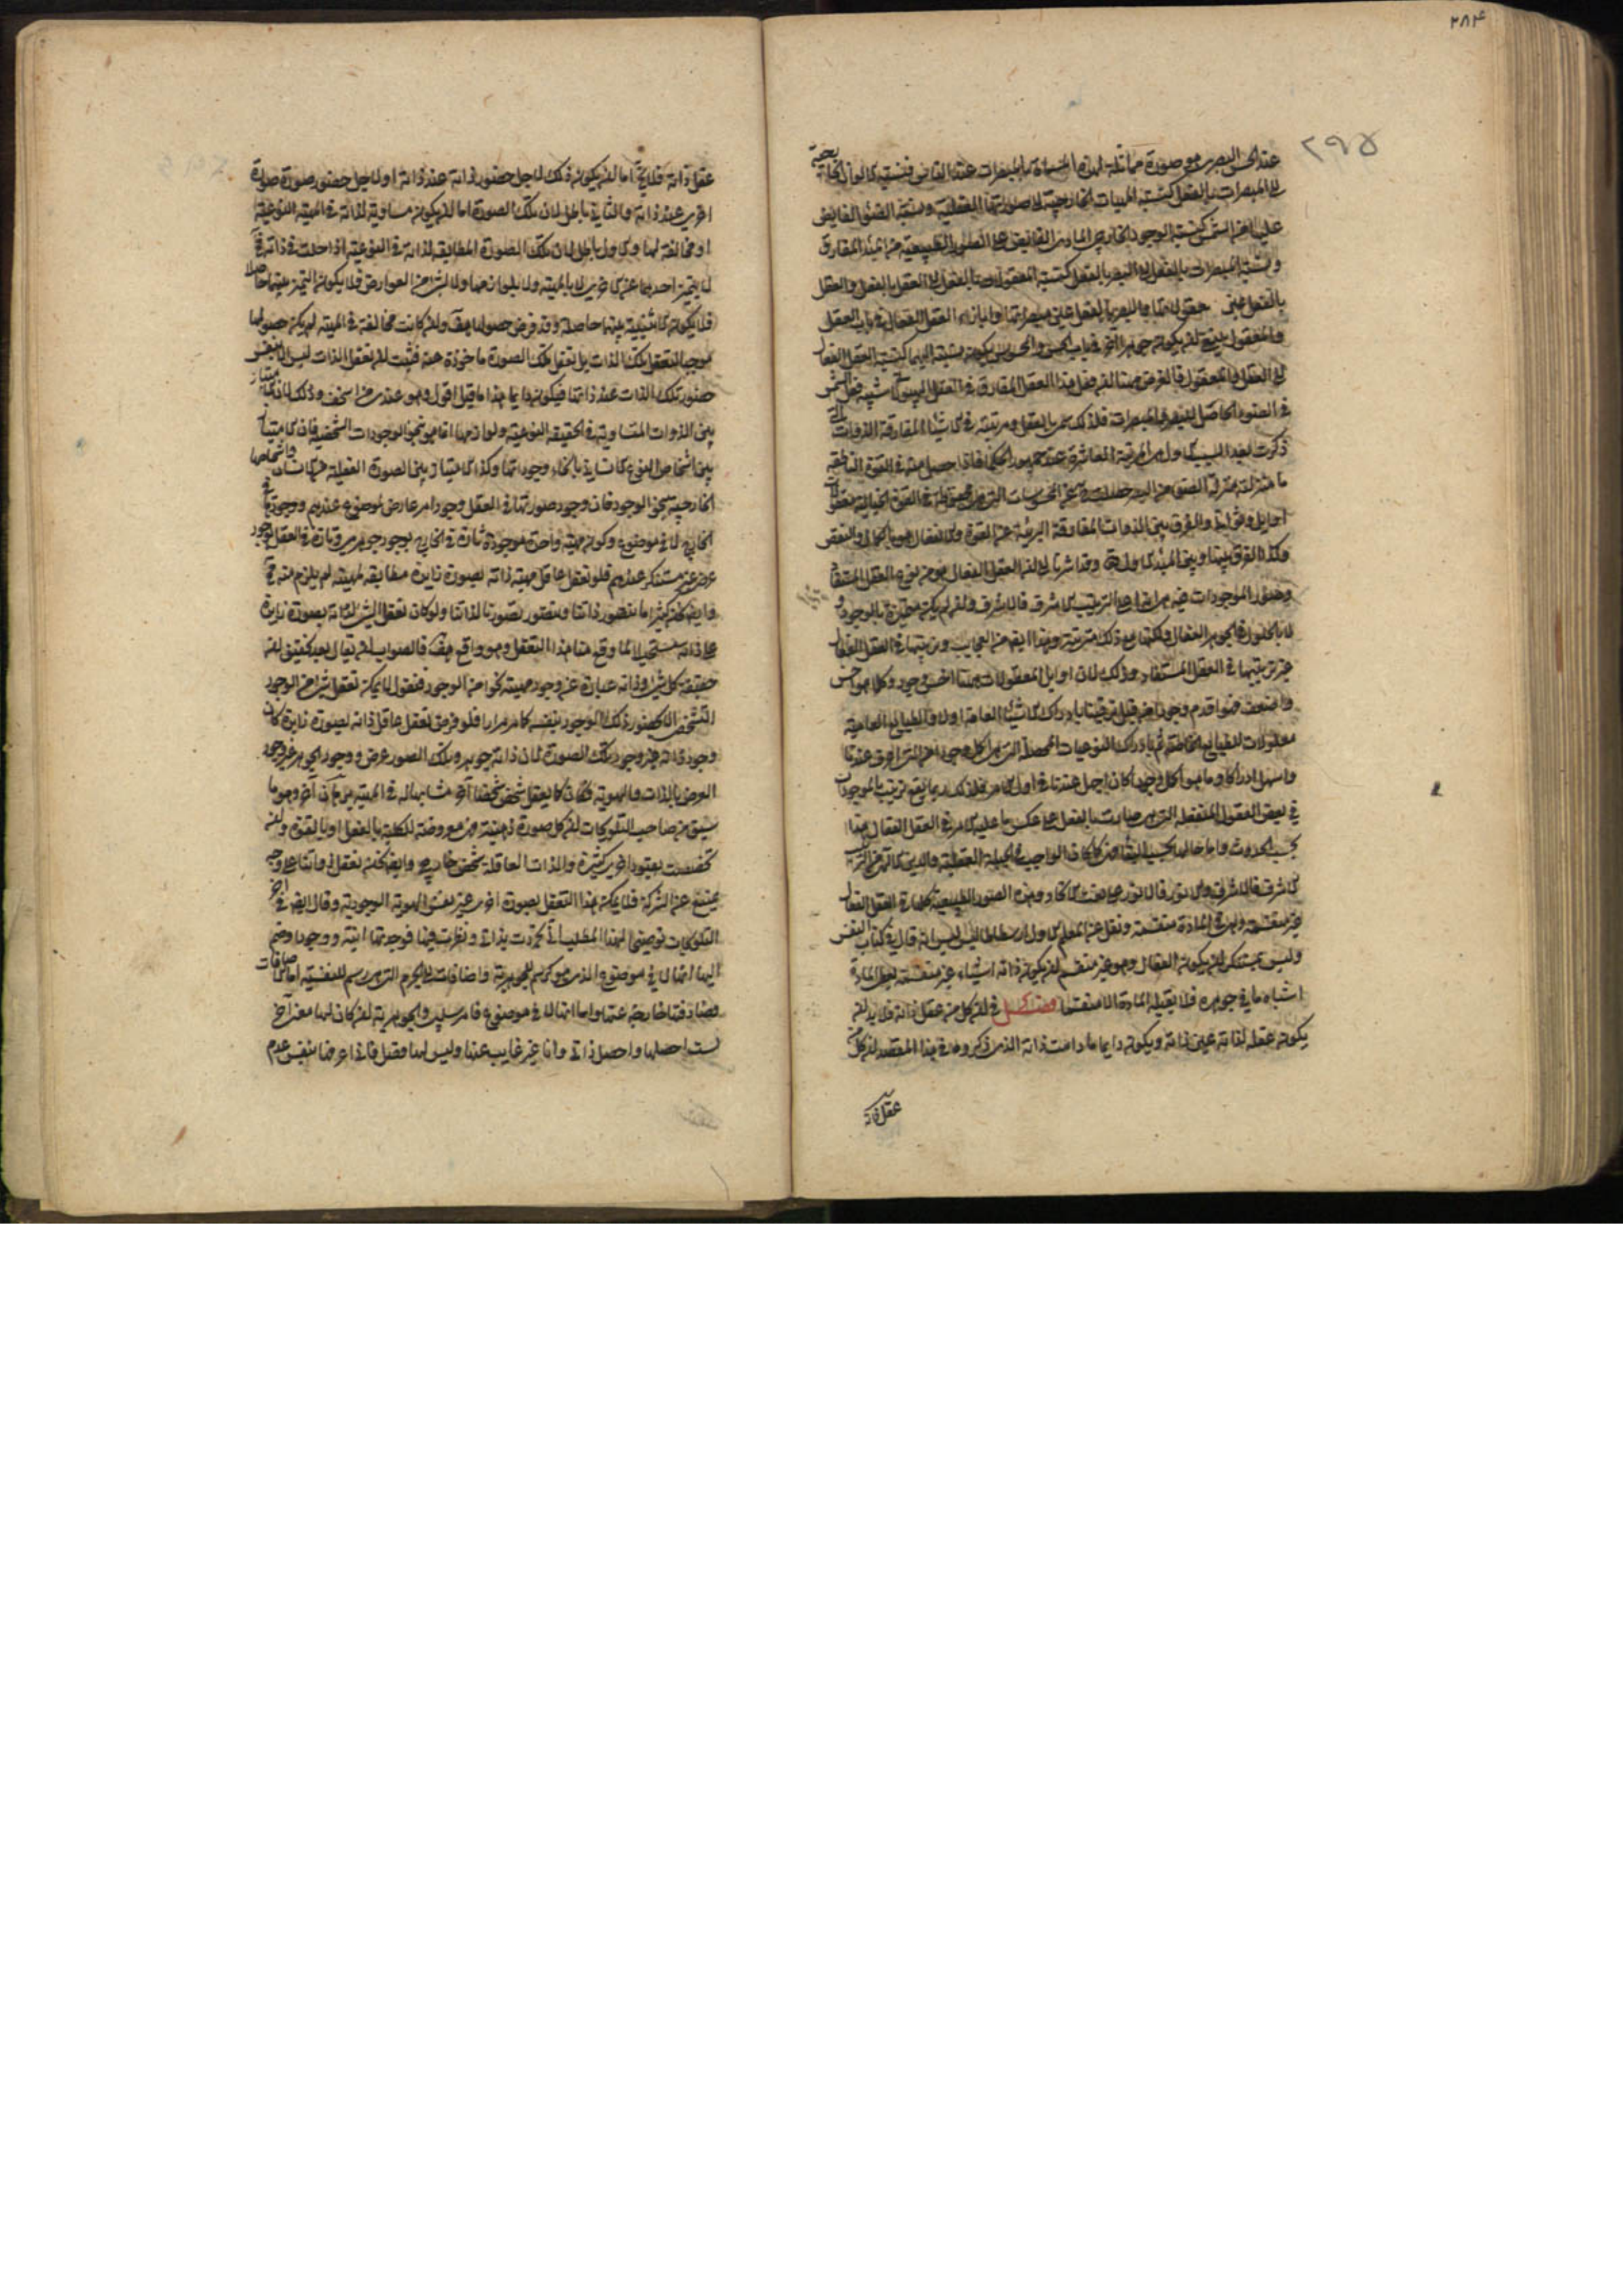 ٢٨٤
٢٩٥
عند الحس البصري هو صورة مماثلة لهذه المسماة بالمبصرات عند القاني فنسبة الالوان الخارجية
الى المبصرات بالفعل كنسبة المهيات الخارجية الى صورتها العقلية ونسبة الضوء الفايض
عليها من الشمس كنسبة الوجود الخارجي المادي الفايض على الصور الطبيعية من المبدء المفارق
ونسبة المبصرات بالفعل الى البصر بالفعل كنسبة المعقولات بالفعل الى العقل بالفعل والعقل
بالفعل عين معقولاتها والبصر بالفعل عين مبصراتها وبازاء العقل الفعال في باب العقل
والمعقول ينبغي ان يكون جوهر آخر في باب الحس والمحسوس يكون نسبته اليهما كنسبة العقل الفعال
الى العقل والمعقول فالغرض ههنا ان فعل هذا العقل المفارق في العقل الهيولاني شبيه فعل الشمس
في الضوء الحاصل للبصر والمبصرات فلذلك سمي بالعقل ومرتبته في الاشياء المفارقة الذوات التي
ذكرت بعد السبب الاول المرتبة العاشرة عند جمهور الحكماء فاذا حصل منه في القوة الناطقة
ما منزلته منزلة الضوء من البصر حصلت عن المحسوسات التي هي محفوظة في القوة الخيالية معقولات
اوايل وثواني والفرق بين الذوات المفارقة البريئة عن القوة والانفعال هو بالكمال والنقص
وكذا الفرق بينها وبين المبدء الاول وقد اشرنا الى ان العقل الفعال هو من نوع العقل المستفاد
وصور الموجودات فيه هي ابدا على الترتيب الاشرف فالاشرف وان لم يكن متحيزة بالوجود و
لا بالحلول في الجوهر الفعال ولكنها مع ذلك مترتبة وهذا ايضا من العجايب وترتيبها في العقل الفعال
غير ترتيبها في العقل المستفاد وذلك لان اوايل المعقولات هيهنا اخس وجود وكلما هو اخس
واضعف فهو اقدم وجودا من قبل ترقينا بادراك الاشياء العامة اولا والطبايع العامية
معلولات للطبايع الخاصة ثم بادراك النوعيات المحصلة التي هي اكمل وجودا من التي اعرف عندنا
واسهل ادراكا وما هو اكمل وجودا كان اجهل عندنا في اول الامر فلذلك ربما يقع ترتيب الموجودات
في بعض العقول المنفعلة التي هي صارت بالفعل على عكس ما عليه الامر في العقل الفعال هذا
بحسب الحدوث واما حالها بحسب البقاء فكما كان الواجب في الجبلة العقلية والدين الاتم من الترتيب
الاشرف فالاشرف والانور فالانور على نعت الاتحاد وهذه الصور الطبيعية كلها في العقل الفعال
غير منقسمة وهي في المادة منقسمة ونقل عن المعلم الاول ارسطاطاليس انه قال في كتاب النفس
وليس بمستنكر ان يكون الفعال وهو غير منقسم ان يكون ذاته اشياء غير منقسمة يعطي المادة
اشباه ما في جوهره فلا يقبله المادة الا منقسما فصل في ان كل من عقل ذاته فلا بد ان
يكون عقله لذاته عين ذاته ويكون دايما ما دامت ذاته الذي ذكروه في هذا المقصد ان كل من
عقل ذاته
عقل ذاته فلا يخ اما ان يكون ذلك لاجل حضور ذاته عند ذاته او لاجل حضور صورة
اخرى عند ذاته والثاني باطل لان تلك الصورة اما ان يكون مساوية لذاته في المهية النوعية
او مخالفة لها والاول باطل لان تلك الصورة المطابقة لذاته في النوعية اذا حلت في ذاته فح
لا يتميز احدهما عن الاخرى لا بالمهية ولا بلوازمها ولا بشئ من العوارض فلا يكون التميز بينهما حاصلا
فلا يكون الاثنينية بينهما حاصلة وقد فرض حصولها هف وان كانت مخالفة في المهية لم يكن حصولها
موجبا لتعقل تلك الذات بل تعقل تلك الصورة ماخوذة عنه فثبت ان تعقل الذات ليس الا بنفس
حضور تلك الذات عند ذاتها فيكون دايما هذا ما قيل اقول وهو عندي سخيف وذلك لان الامتياز
بين الذوات المتساوية في الحقيقة النوعية ولوازمها انما هو بنحو الوجودات الشخصية فان الامتياز
بين اشخاص النوع كالانسان بانحاء وجوداتها وكذا الامتياز بين الصورة العقلية منه كالانسان واشخاصها
الخارجية بنحو الوجود فان وجود صورتها في العقل وجود امر عارض لموضوع عندهم ووجودها في
الخارج لا في موضوع وكون مهية واحدة موجودة تارة في الخارج بوجود جوهري وتارة في العقل بوجود
عرضي غير مستنكر عندهم فلو تعقل عاقل مهية ذاته بصورة زايدة مطابقة لمهيته لم يلزم منه مح
وايضا كثيرا ما نتصور ذاتنا ونتصور تصورنا لذاتنا ولو كان تعقل الشئ لذاته بصورة زايدة
على ذاته مستحيلا لما وقع منا هذا التعقل وهو واقع هف فالصواب ان يقال بعد تحقيق ان
حقيقة كل شئ وذاته عبارة عن وجود مهيته نحوا من الوجود فنقول لا يمكن تعقل شئ من الوجود
الشخصي الا بحضور ذلك الوجود بنفسه كما مر مرارا فلو فرض تعقل عاقل ذاته بصورة زايدة كان
وجود ذاته غير وجود تلك الصورة لان ذاته جوهر وتلك الصور عرض ووجود الجوهر غير وجود
العرض بالذات والهوية فكان كما يعقل شخص شخصا آخر مشابها له في المهية من جهات آخر وهو ما
سبق من صاحب التلويحات ان كل صورة ذهنية فهي معروضة للكلية بالفعل او بالقوة وان
تخصصت بقيود اخرى كثيرة والذات العاقلة شخص خارجي وايضا نحن نعقل ذواتنا على وجه
يمتنع عن الشركة فلا يمكن هذا التعقل بصورة اخرى غير نفس الهوية الوجودية وقال ايضا في اخر
التلويحات توضيحا لهذا المطلب اني تجردت بذاتي ونظرت فيها فوجدتها انية ووجودا وضم
اليها انها لا في موضوع الذي هو كرسم للجوهرية واضافات الى الجرم التي هي رسم للنفسية اما الاضافات
فصادفتها خارجة عنها واما انها لا في موضوع فامر سلبي والجوهرية ان كان لها معنى آخر
لست احصلها واحصل ذاتي وانا غير غايب عنها وليس لها فصل فاني اعرفها بنفس عدم